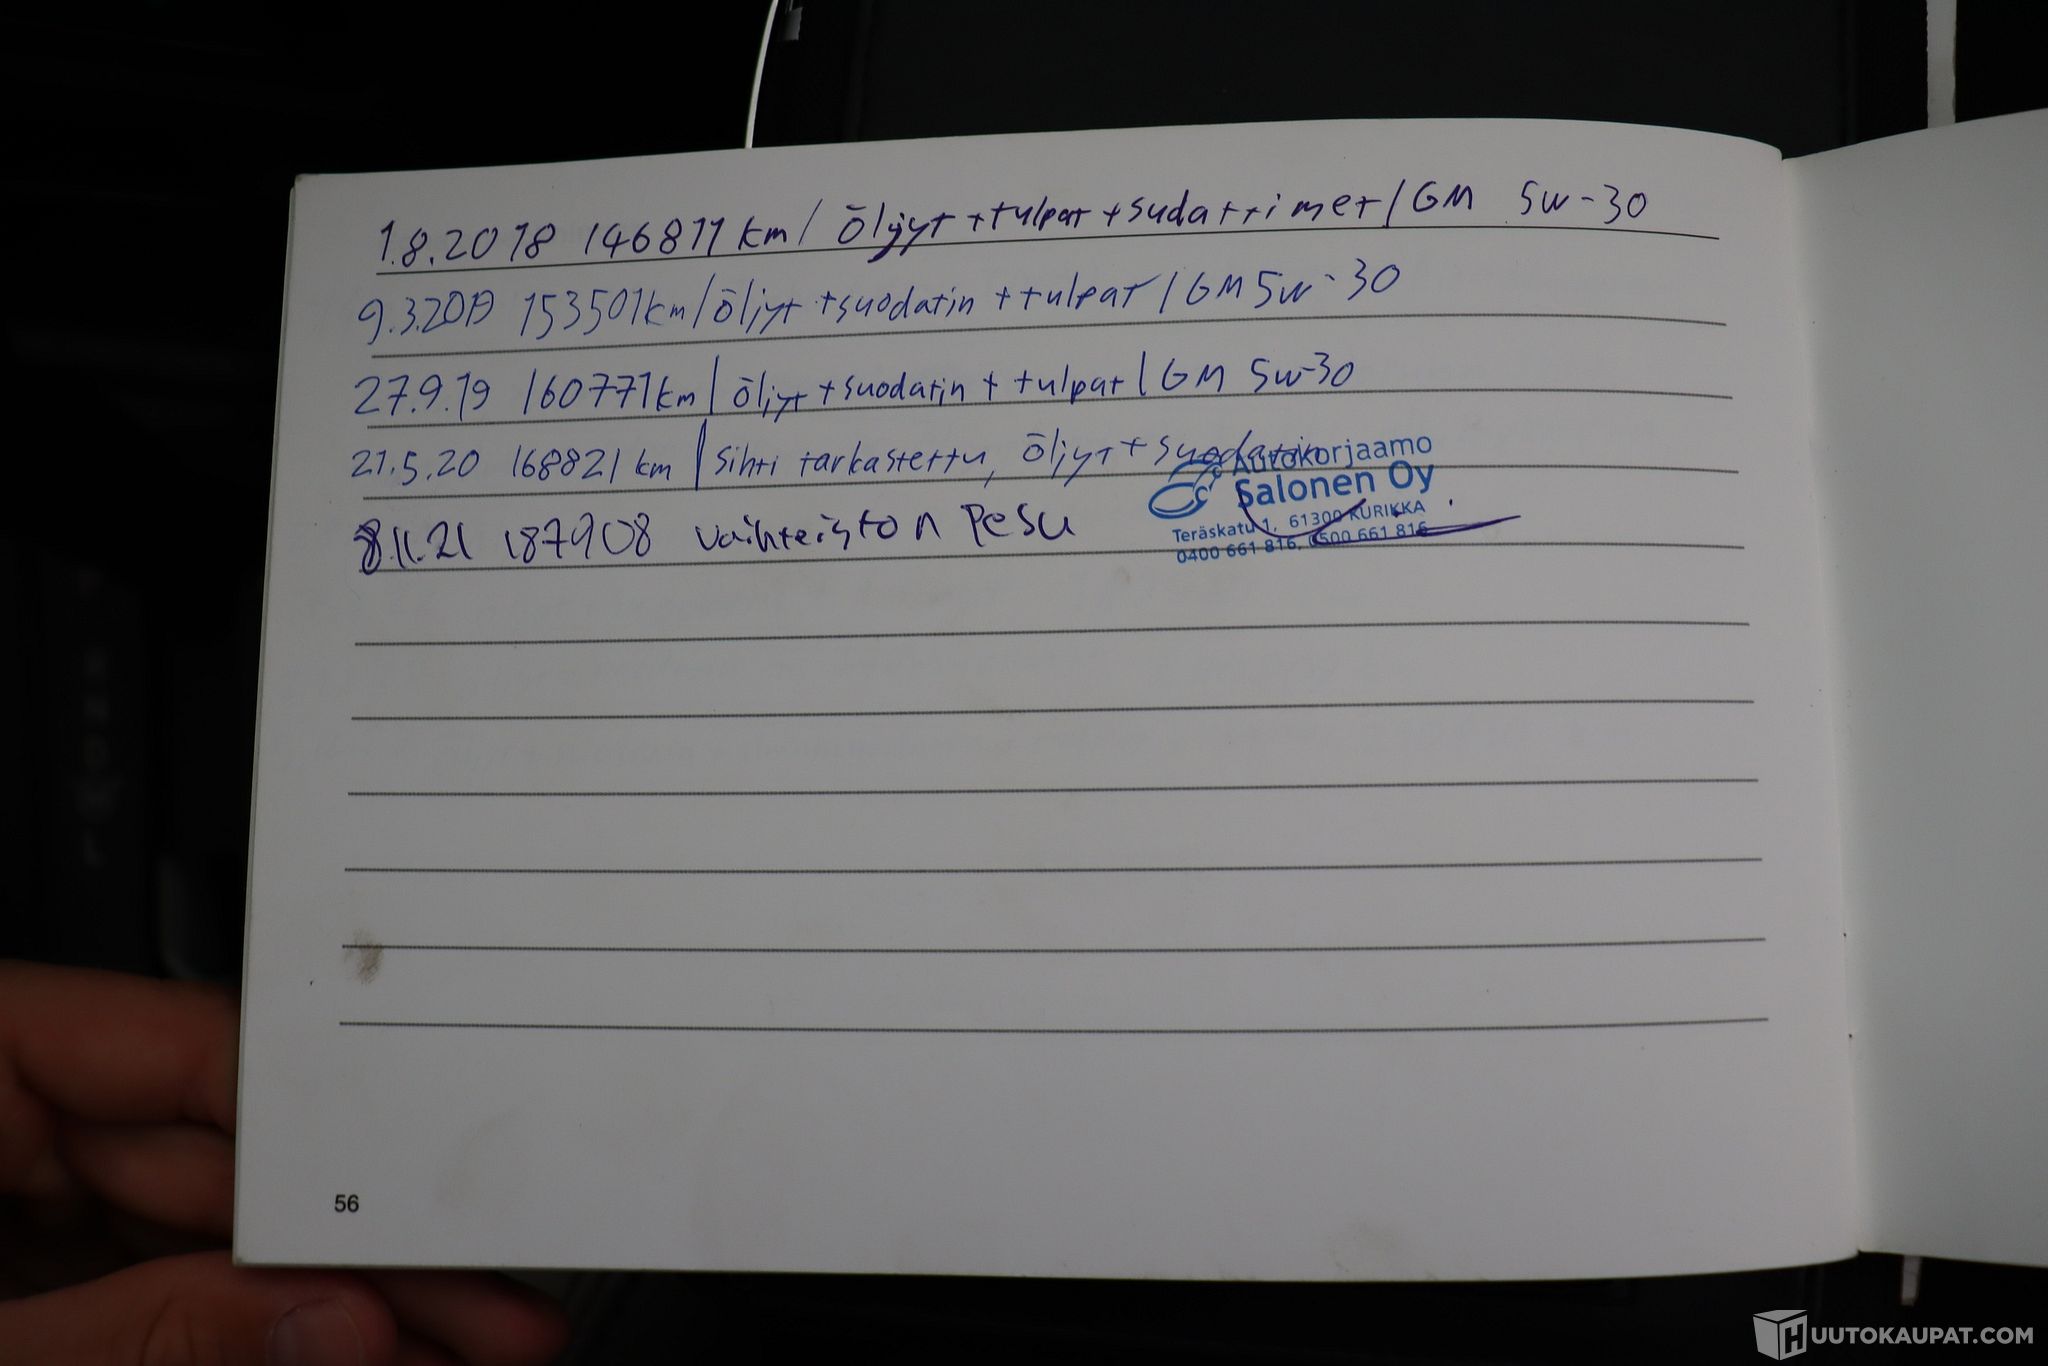 1.8.2018 146811 km / öljyt + tulpat + sudattimet / GM 5w-30
9.3.2019 153501km / öljyt + suodatin + tulpat / GM 5w-30
27.9.19 160771km / öljyt + suodatin + tulpat / GM 5w-30
21.5.20 168821 km / sihti tarkastettu, öljyt + suodatin
Autokorjaamo
Salonen Oy
Teräskatu 1, 61300 KURIKKA
0400 661 816, 0500 661 816
8.11.21 187908 vaihteiston pesu
56
HUUTOKAUPAT.COM